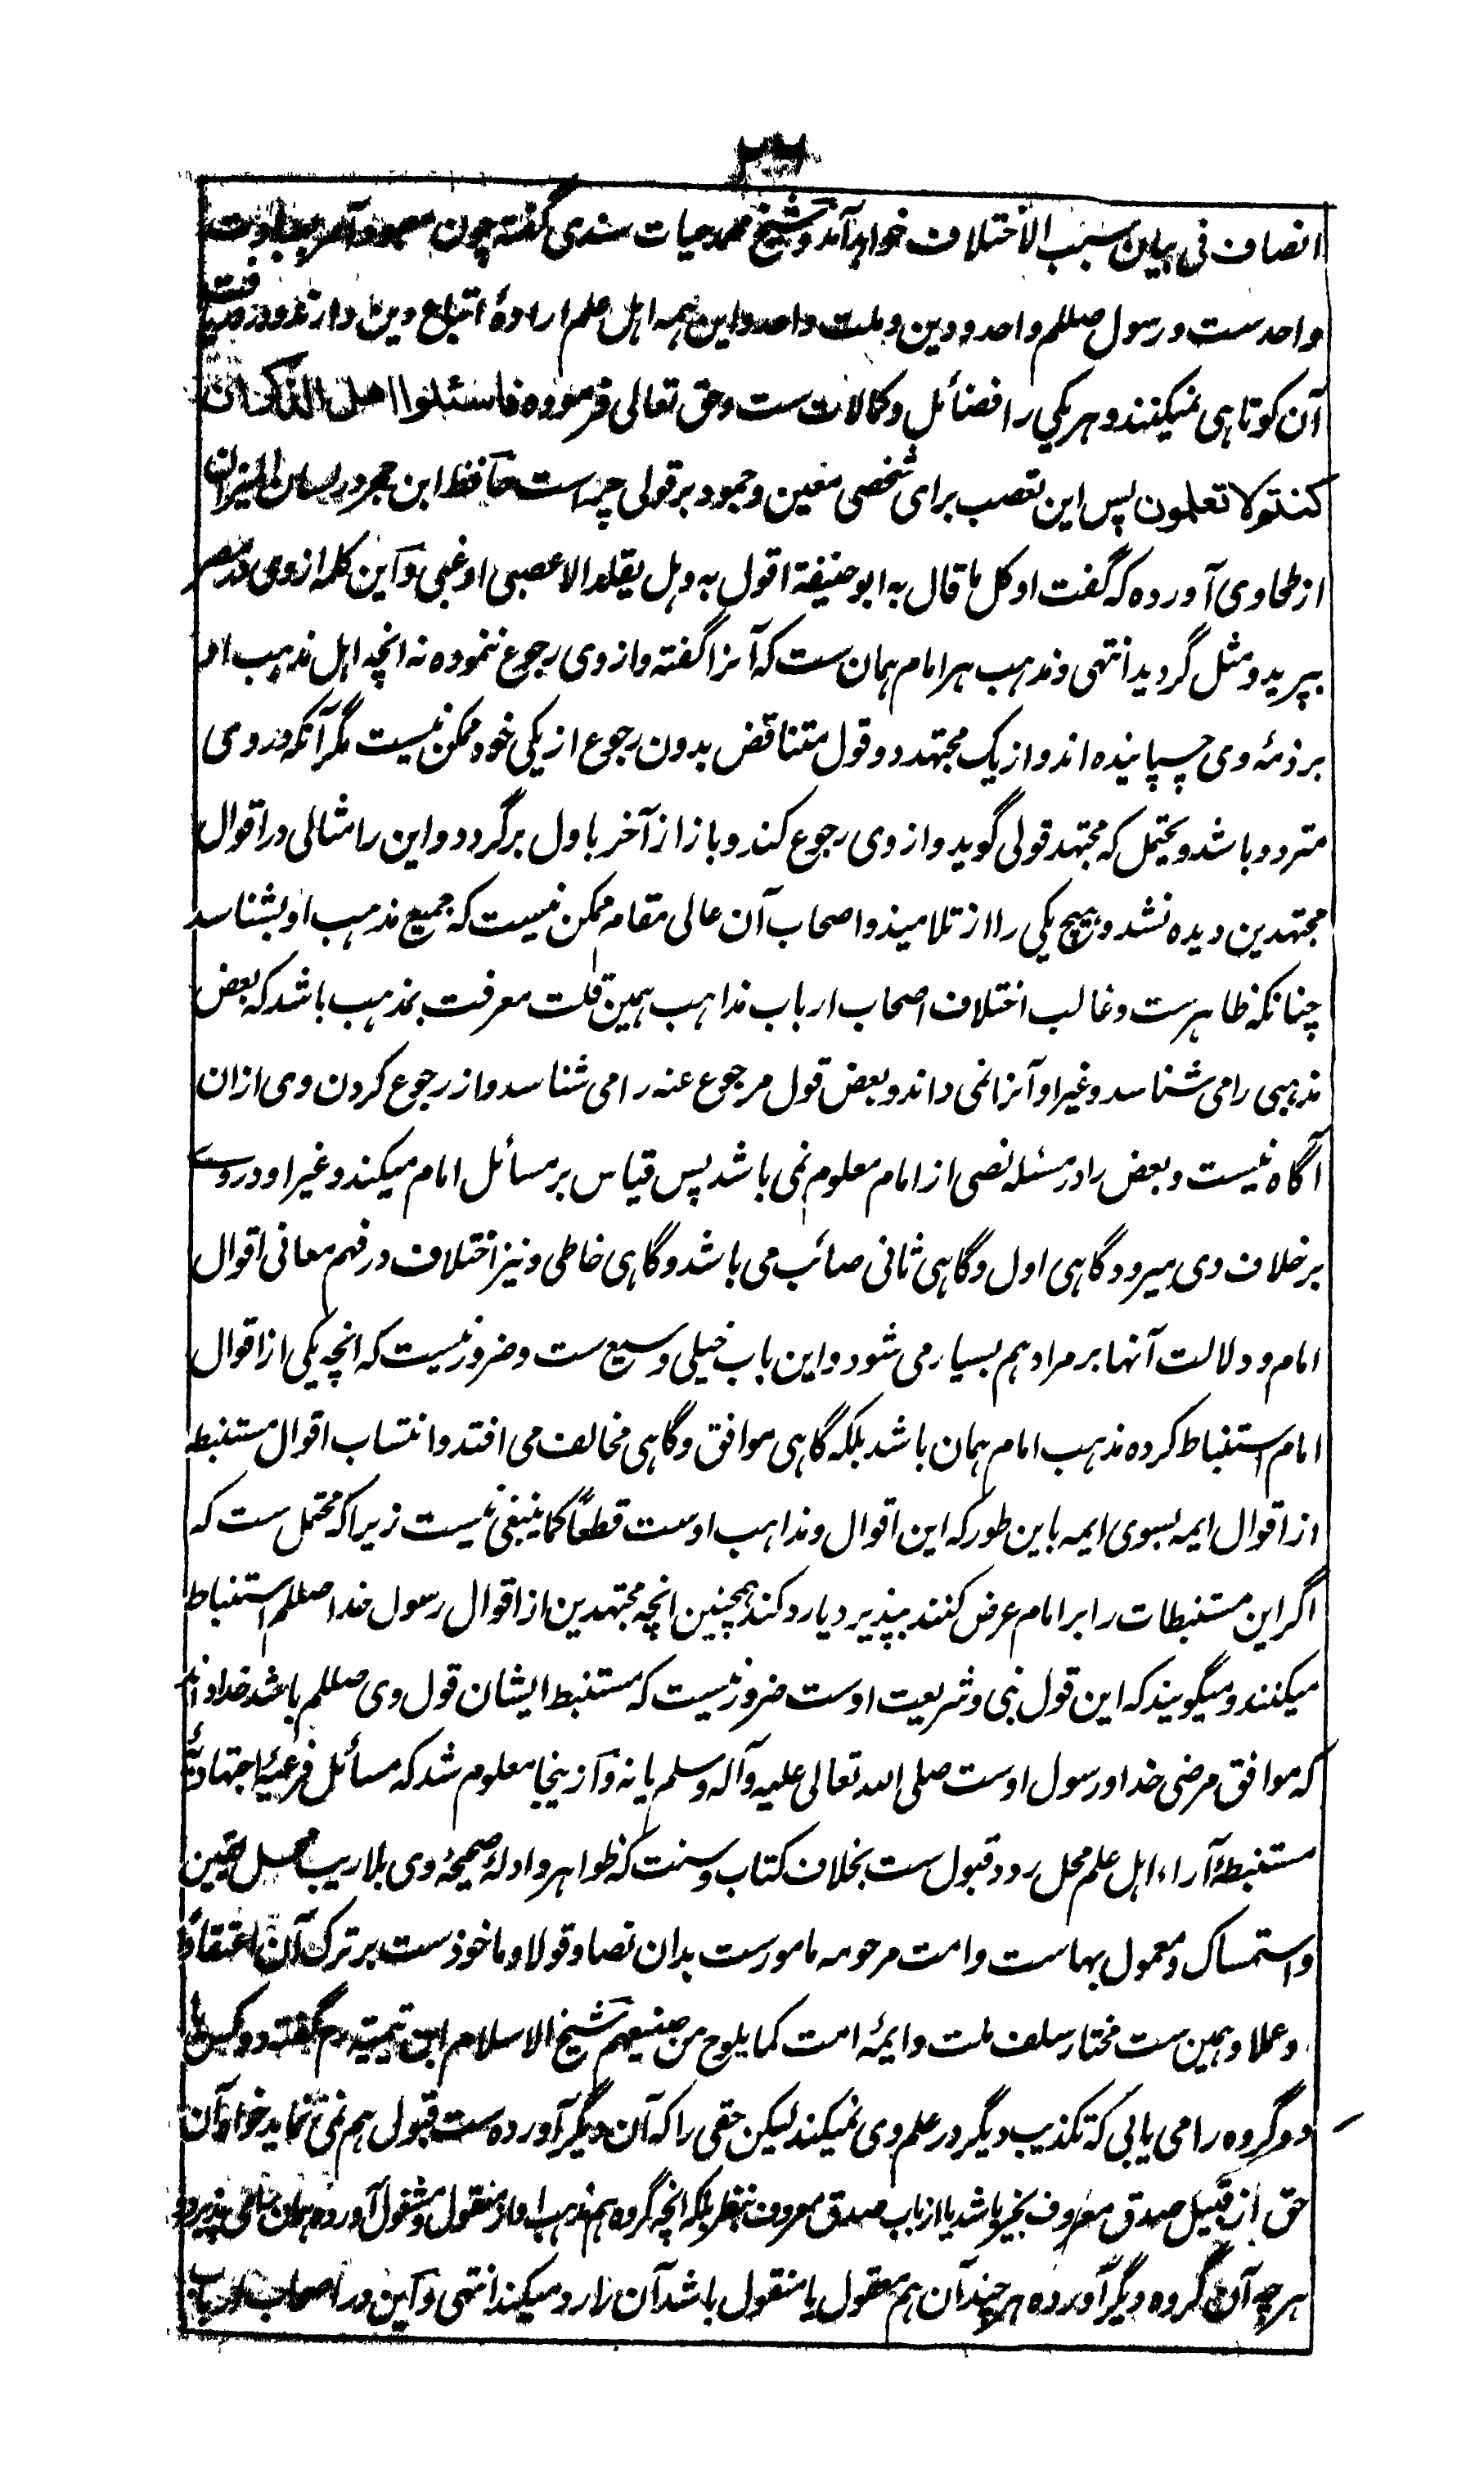 انصاف فی بیان سبب الاختلاف خواهد آمد و شیخ محمد حیات سندی گفته چون معبود
واحدست و رسول صللم واحد و دین و ملت واحد و این همه اهل علم ارادهٔ اتباع دین دارند و در
آن کوتاهی نمیکنند و هر یکی را فضائل و کمالات ست و حق تعالی فرموده فاسئلوا اهل الذکر ان
کنتم لا تعلمون پس این تعصب برای شخصی معین و جمود بر قولی چراست حافظ ابن حجر در لسان المیزان
از طحاوی آورده که گفت او کل ما قال به ابو حنیفة اقول به و هل یقلد الا عصبی او غبی و این کلمه از وی در مصر
بپرید و مثل گردید انتهی و مذهب هر امام همان ست که آنرا گفته و از وی رجوع ننموده نه انچه اهل مذهب او
بر ذمهٔ وی چسپانیده اند و از یک مجتهد دو قول متناقض بدون رجوع از یکی خود ممکن نیست مگر آنکه در وی
متردد باشد و یحتمل که مجتهد قولی گوید و از وی رجوع کند و باز از آخر باول برگردد و این را مثالی در اقوال
مجتهدین دیده نشد و هیچ یکی را از تلامیذ و اصحاب آن عالی مقام ممکن نیست که جمیع مذهب او بشناسد
چنانکه ظاهرست و غالب اختلاف اصحاب ارباب مذاهب همین قلت معرفت بمذهب باشد که بعض
مذهبی را می شناسد و غیر او آنرا نمی داند و بعض قول مرجوع عنه را می شناسد و از رجوع کردن وی ازان
آگاه نیست و بعض را در مسئله نصی از امام معلوم نمی باشد پس قیاس بر مسائل امام میکند و غیر او در وے
بر خلاف وی میرود گاهی اول و گاهی ثانی صائب می باشد و گاهی خاطی و نیز اختلاف در فهم معانی اقوال
امام و دلالت آنها بر مراد هم بسیار می شود و این باب خیلی وسیع ست و ضرور نیست که انچه یکی از اقوال
امام استنباط کرده مذهب امام همان باشد بلکه گاهی موافق و گاهی مخالف می افتد و انتساب اقوال مستنبطه
از اقوال ایمه بسوی ایمه باین طور که این اقوال و مذاهب اوست قطعاً کما ینبغی نیست زیرا که محتمل ست که
اگر این مستنبطات را بر امام عرض کنند بپذیرد یا رد کند همچنین انچه مجتهدین از اقوال رسول خدا صللم استنباط
میکنند و میگویند که این قول نبی و شریعت اوست ضرور نیست که مستنبط ایشان قول وی صللم باشد خدا داند
که موافق مرضی خدا و رسول اوست صلی الله تعالی علیه وآله وسلم یا نه و ازینجا معلوم شد که مسائل فرعیهٔ اجتهادیهٔ
مستنبطهٔ آراء اهل علم محل رد و قبول ست بخلاف کتاب و سنت که ظواهر و ادلهٔ صحیحهٔ وی بلا ریب محل یقین
و استمساک و معمول بهاست و امت مرحومه مامورست بدان نصا و قولا و ماخوذ ست بر ترک آن اعتقاداً
و عملا و همین ست مختار سلف ملت و ایمهٔ امت کما یلوح من صنیعهم شیخ الاسلام ابن تیمیه رح گفته دو کس یا
دو گروه را می یابی که تکذیب دیگر در علم وی نمیکند لیکن حقی را که آن دیگر آورده ست قبول هم نمی نماید خواه آن
حق از قبیل صدق معروف بخبر باشد یا از باب صدق معروف بنظر بلکه انچه گروه هم مذهب او از منقول و معقول آورده همان را می پذیرد و
هر چه آن گروه دیگر آورده هر چند آن هم معقول یا منقول باشد آن را رد میکند انتهی و این در اصحاب ارباب